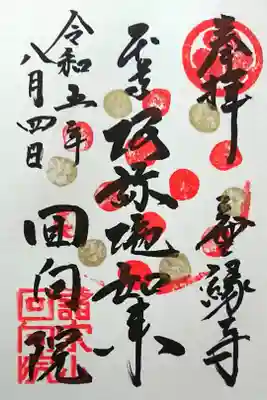 奉拝　無縁寺
本尊　阿弥陀如来
令和五年
八月四日
回向院
諸宗山
回向院